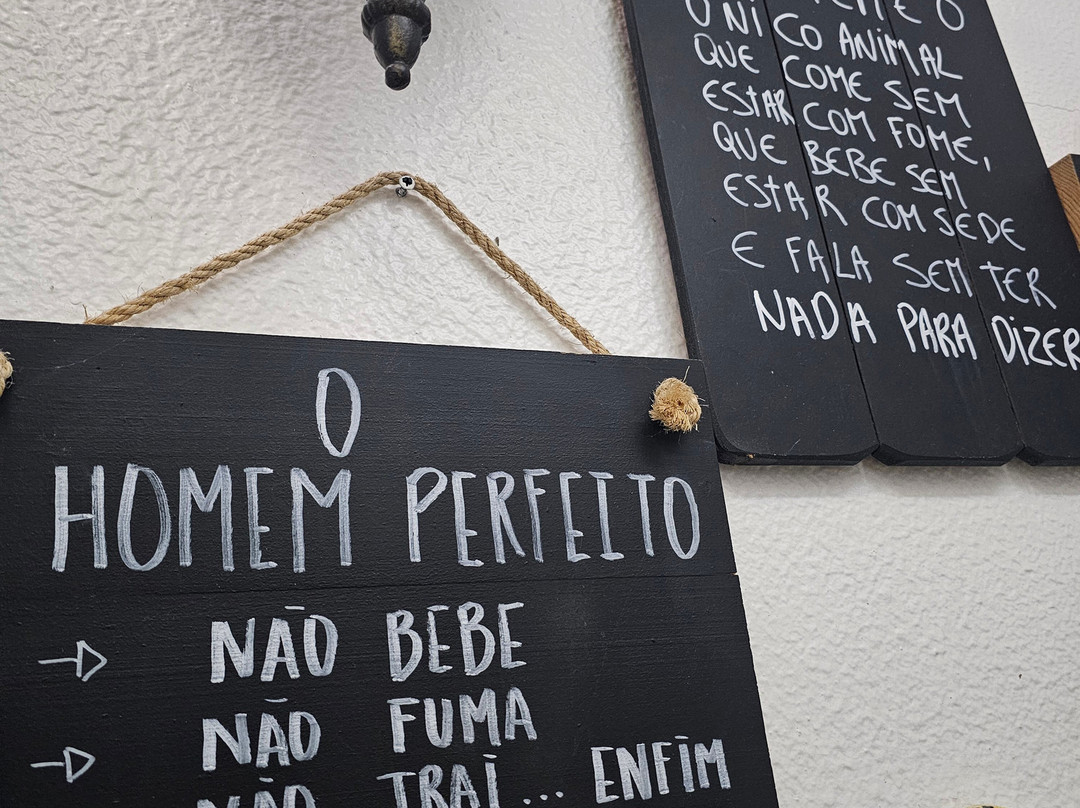 O
HOMEM PERFEITO
NÃO BEBE
NÃO FUMA
NÃO TRAI... ENFIM
ÚNICO ANIMAL
QUE COME SEM
ESTAR COM FOME,
QUE BEBE SEM
ESTAR COM SEDE
E FALA SEM TER
NADA PARA DIZER